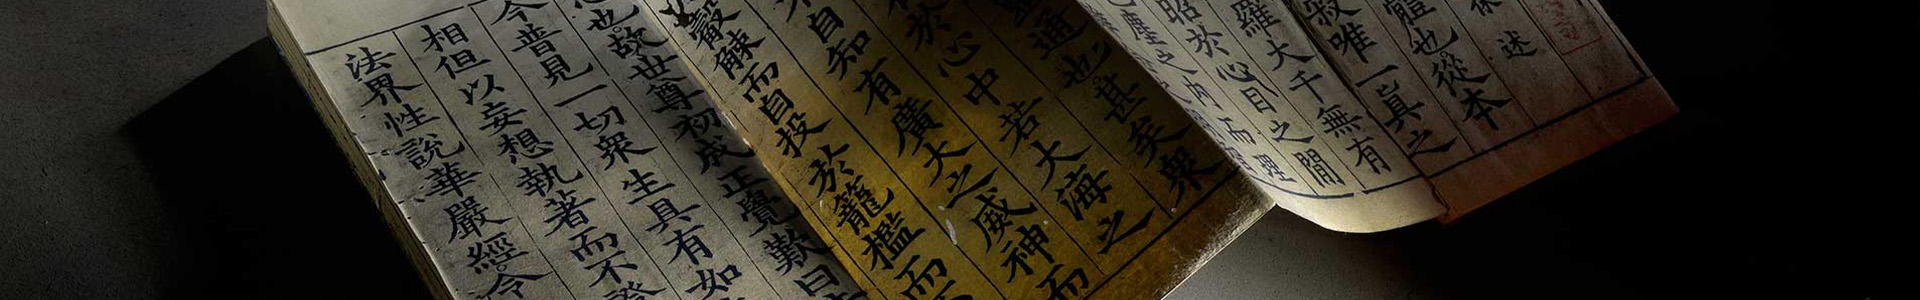 述
體也從本
寂唯一真之
羅大千無有
昭於心目之間
塵之內而理
通也甚矣衆
於心中若大海之
自知有廣大之威神而
觳觫而自投於籠檻而
也故世尊初成正覺歎曰
今普見一切衆生具有如
相但以妄想執著而不證
法界性說華嚴經令